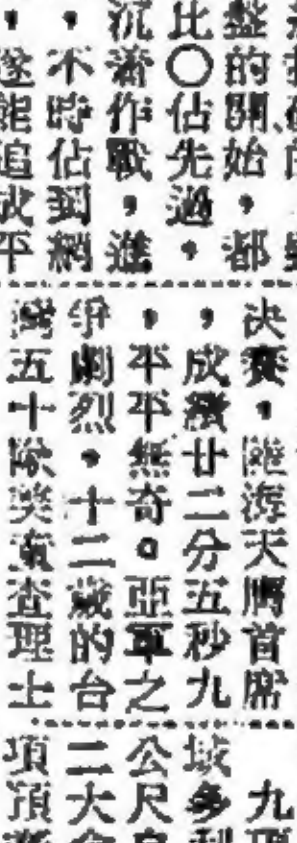 盤的開始，都
比○佔先過，
沉着作戰，進
，不時佔到網
，遂能追成平
決賽，游天鵬首席
，成績廿二分五秒九
，平平無奇。亞軍之
爭劇烈，十二歲的台
灣五十查理士
九項
域多
公尺
二大
項預